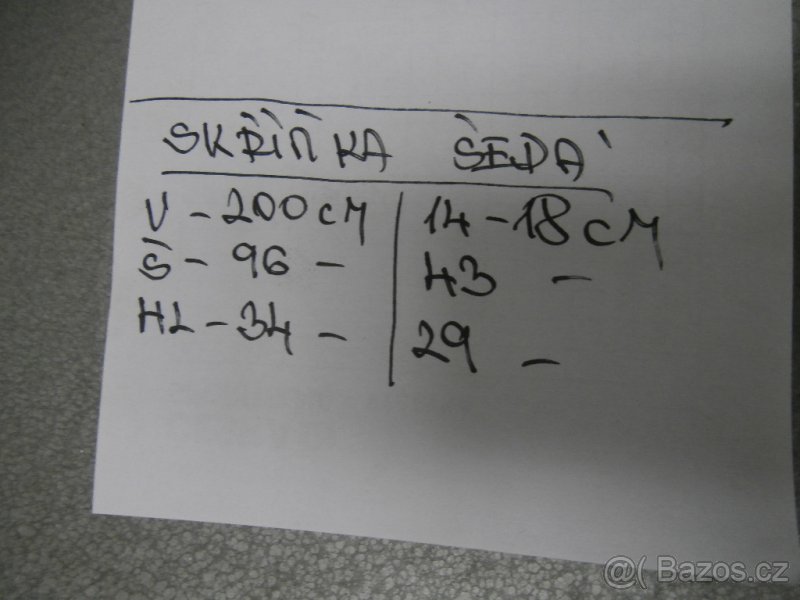 SKŘÍŇKA ŠEDÁ
V - 200 cM | 14 - 18 cM
Š - 96 - | 43 -
HL - 34 - | 29 -
@( Bazos.cz